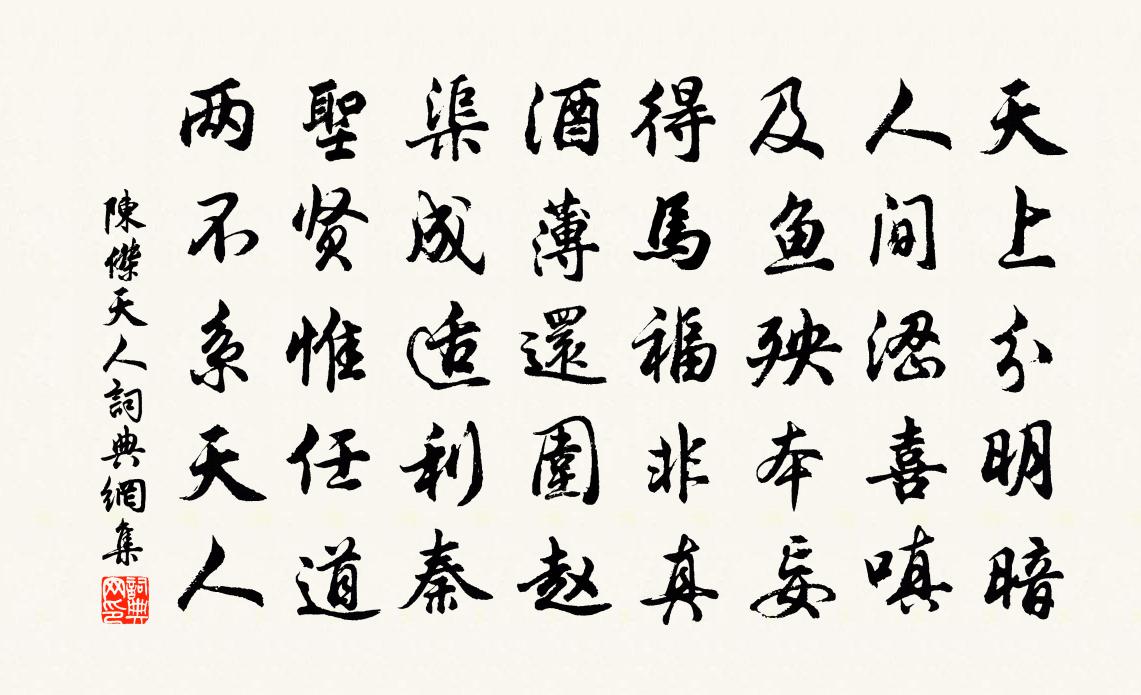 天上分明暗
人间喜嗔
及鱼殃本妄
得馬福非真
酒薄還圍赵
渠成适利秦
聖贤惟任道
两不系天人
陳傑天人詞典網集
詞典网印